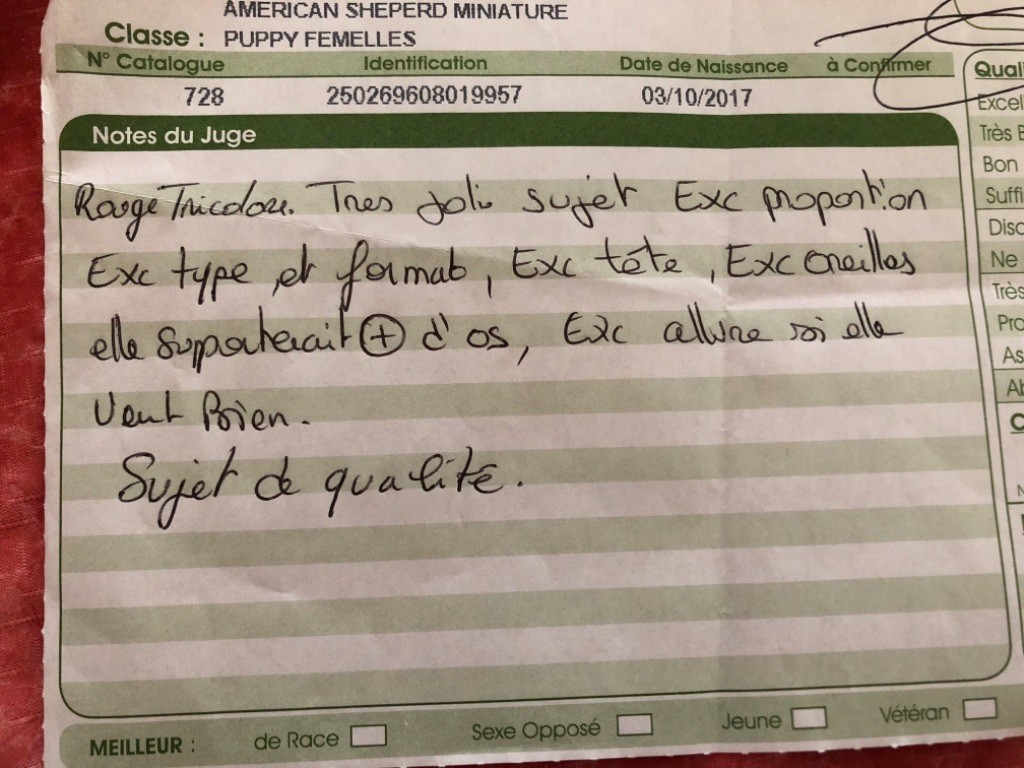 AMERICAN SHEPERD MINIATURE
Classe : PUPPY FEMELLES
N° Catalogue Identification Date de Naissance à Confirmer
728 250269608019957 03/10/2017
Notes du Juge
Rouge Tricolore. Tres joli sujet Exc proportion
Exc type, et format, Exc tête, Exc oreilles
elle supporterait + d'os, Exc allure si elle
veut Bien.
Sujet de qualité.
MEILLEUR : de Race Sexe Opposé Jeune Vétéran
Quali
Excel
Très B
Bon
Suffi
Disq
Ne
Très
Pro
As
Ab